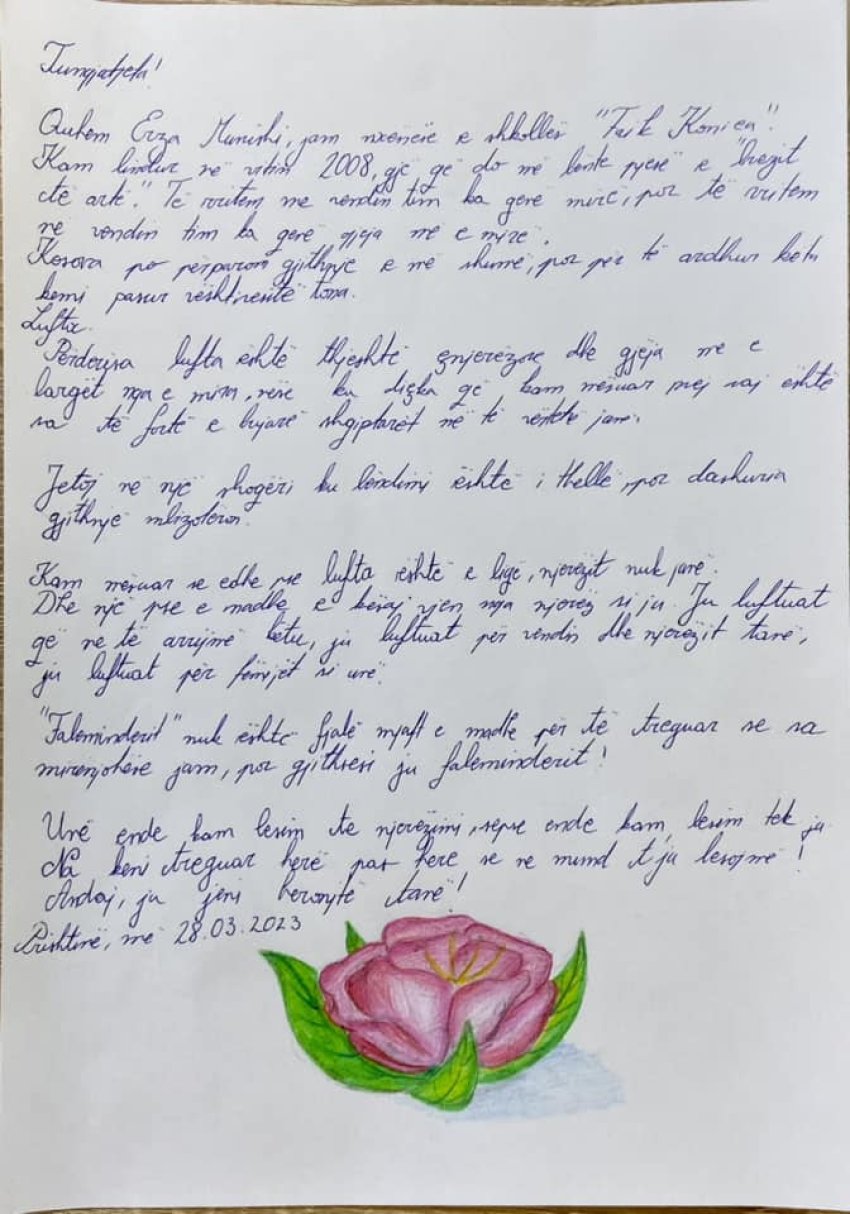 Tungjatjeta!
Quhem Erza Munishi, jam nxenëse e shkollës "Faik Konica".
Kam lindur në vitin 2008, gjë që do më bënte pjesë e "brezit
të artë." Të rritem me vendin tim ka qenë mirë, por të rritem
në vendin tim ka qenë gjëja më e mirë.
Kosova po përparon gjithnjë e më shumë, por për të ardhur këtu
kemi pasur vështirësitë tona.
Lufta.
Përderisa lufta është thjeshtë çnjerëzore dhe gjëja më e
largët nga e mira, nëse ka diçka që kam mësuar prej saj është
sa të fortë e bujarë shqiptarët në të vërtetë janë.
Jetoj në një shoqëri ku lëndimi është i thellë, por dashuria
gjithnjë mbizotëron.
Kam mësuar se edhe pse lufta është e ligë, njerëzit nuk janë.
Dhe një pse e madhe e kësaj vjen nga njerëz si ju. Ju luftuat
që ne të arrijmë këtu, ju luftuat për vendin dhe njerëzit tanë,
ju luftuat për fëmijët si unë.
"Faleminderit" nuk është fjalë mjaft e madhe për të treguar se sa
mirënjohëse jam, por gjithsesi ju faleminderit!
Unë ende kam besim te njerëzimi, sepse ende kam besim tek ju.
Na keni treguar herë pas here se ne mund t'ju besojmë!
Andaj, ju jeni heronjtë tanë!
Prishtinë, më 28.03.2023